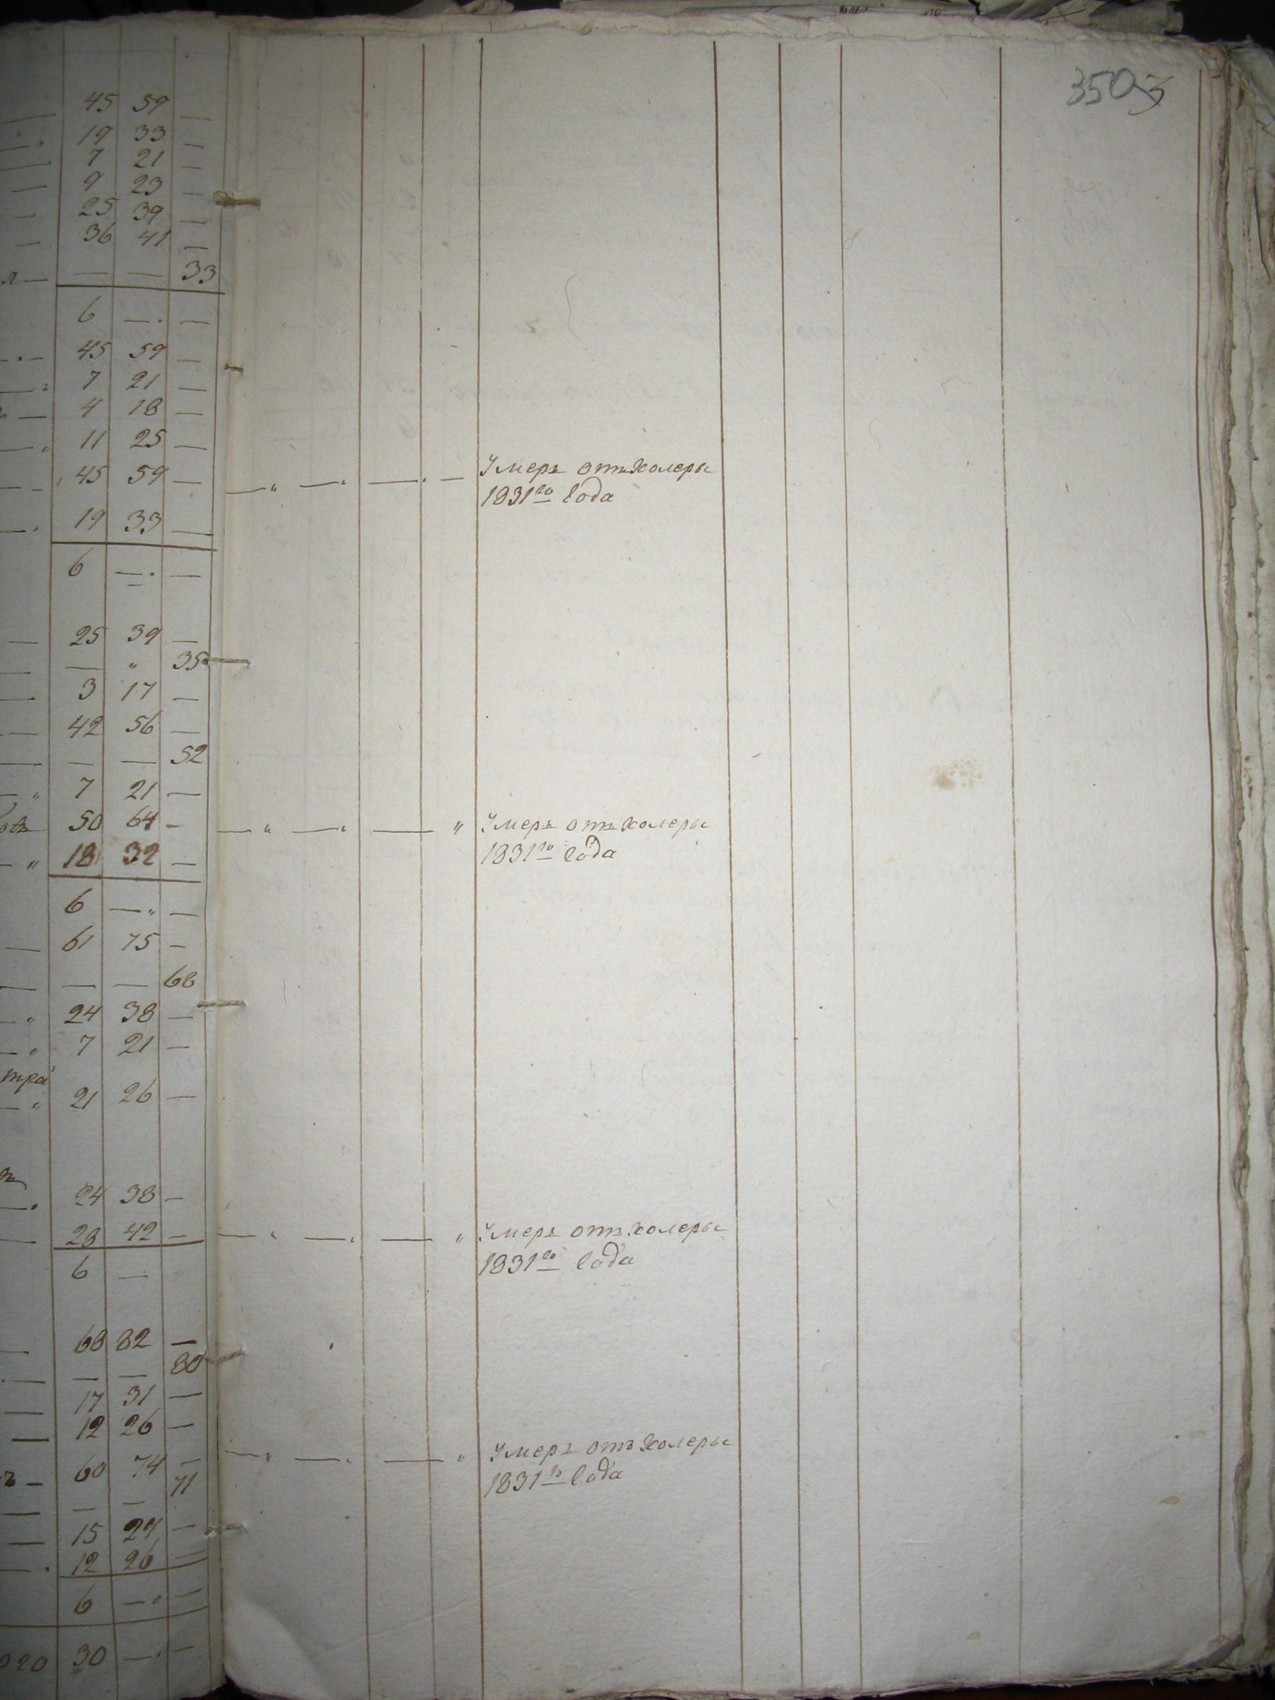 3503
45 59 —
19 33 —
7 21 —
9 23 —
25 39 —
36 41 —
— — 33
6 — —
45 59 —
7 21 —
4 18 —
11 25 —
45 59 — Умеръ отъ холеры
1831го года
19 33 —
6 — —
25 39 —
— „ 35
3 17 —
42 56 —
— — 52
7 21 —
50 64 — Умеръ отъ холеры
1831го года
18 32 —
6 — —
61 75 —
— — 68
24 38 —
7 21 —
21 26 —
24 38 —
28 42 — Умеръ отъ холеры
1831го года
6 —
68 82 —
— — 80
17 31 —
12 26 —
60 74 — Умеръ отъ холеры
1831го года
— — 71
15 29 —
12 26 —
6 — —
30 — —